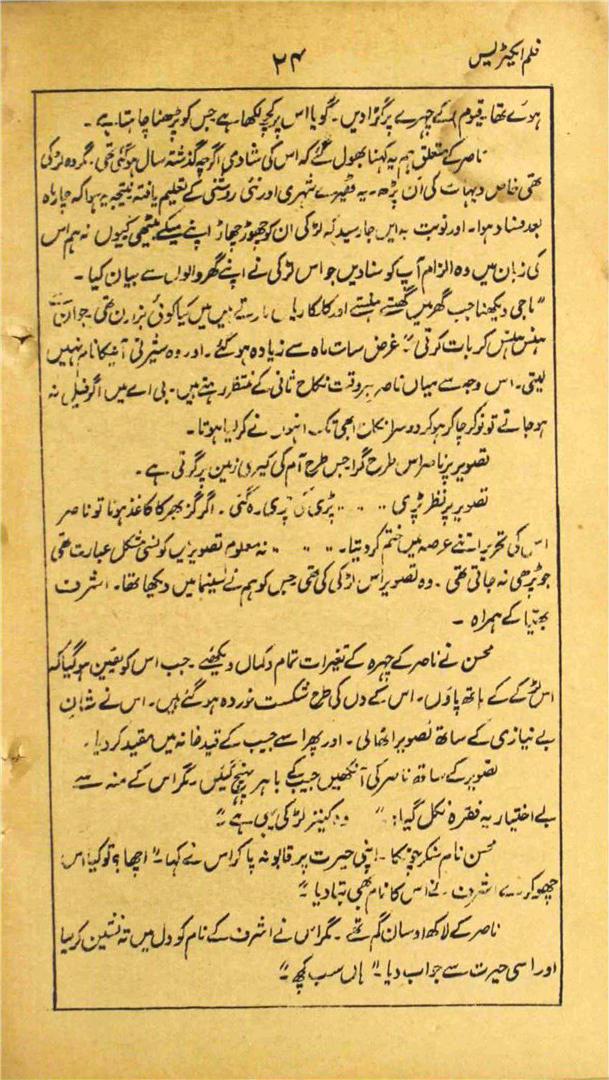 فلم ایکٹریس
۲۴
ہوئے تھا۔ قوم کے چہرے پر گڑا دیں۔ گویا اس پر کچھ لکھا ہے جس کو پڑھنا چاہتا ہے۔
ناصر کے متعلق ہم یہ کہنا بھول گئے کہ اس کی شادی اگرچہ گذشتہ سال ہو گئی تھی۔ مگر وہ لڑکی
تھی خاص دیہات کی اَن پڑھ۔ یہ ٹھیرے شہری اور نئی روشنی کے تعلیم یافتہ نتیجہ یہ ہوا کہ چار ماہ
بعد فساد ہوا۔ اور نوبت بہ ایں جا رسید کہ لڑکی ان کو چھوڑ چھاڑ اپنے میکے بیٹھی کیوں نہ ہم اس
کی زبان میں وہ الزام آپ کو سنا دیں جو اس لڑکی نے اپنے گھر والوں سے بیان کیا۔
"باجی دیکھنا جب گھر میں گھستے ہنستے اور کلکاریاں مارتے ہیں میں کیا کوئی ہزارن تھی۔ جو ان سے
ہنس ہنس کر بات کرتی"۔ غرض سات ماہ سے زیادہ ہو گئے۔ اور وہ شیرنی آنیکا نام نہیں
لیتی۔ اس وجہ سے میاں ناصر ہر وقت نکاح ثانی کے منتظر رہتے ہیں۔ بی اے میں اگر فیل نہ
ہو جاتے تو نوکر چاکر ہو کر دوسرا نکاح ابھی تک انہوں نے کر لیا ہوتا۔
تصویر پر ناصر اس طرح گرا جس طرح آم کی کیری زمین پر گرتی ہے۔
تصویر پر نظر پڑی . . . . پڑی کی پڑی رہ گئی۔ اگر گز بھر کا کاغذ ہوتا تو ناصر
اس کی تحریر اتنے عرصہ میں ختم کر دیتا۔ . . . . نہ معلوم تصویر میں کونسی مشکل عبارت تھی
جو پڑھی نہ جاتی تھی۔ وہ تصویر اس لڑکی کی تھی جس کو ہم نے سینما میں دیکھا تھا۔ اشرف
بھیّا کے ہمراہ۔
محسن نے ناصر کے چہرہ کے تغیرات تمام و کمال دیکھے۔ جب اس کو یقین ہو گیا کہ
اس لڑکے کے ہاتھ پاؤں۔ اس کے دل کی طرح شکست خوردہ ہو گئے ہیں۔ اس نے شانِ
بے نیازی کے ساتھ تصویر اٹھالی۔ اور پھر اسے جیب کے قید خانہ میں مقید کر دیا۔
تصویر کے ساتھ ناصر کی آنکھیں جیب کے باہر پہنچ گئیں۔ مگر اس کے منہ سے
بے اختیار یہ فقرہ نکل گیا:۔ "وہ کنیز لڑکی یہی ہے"
محسن نام سنکر چونکا۔ اپنی حیرت پر قابو نہ پا کر اس نے کہا۔ "اچھا؟ تو کیا اس
چھوکرے اشرف نے اس کا نام بھی بتا دیا۔"
ناصر کے لاکھ اوسان گم تھے۔ مگر اس نے اشرف کے نام کو دل میں تہ نشین کر لیا
اور اسی حیرت سے جواب دیا۔ "ہاں سب کچھ۔"